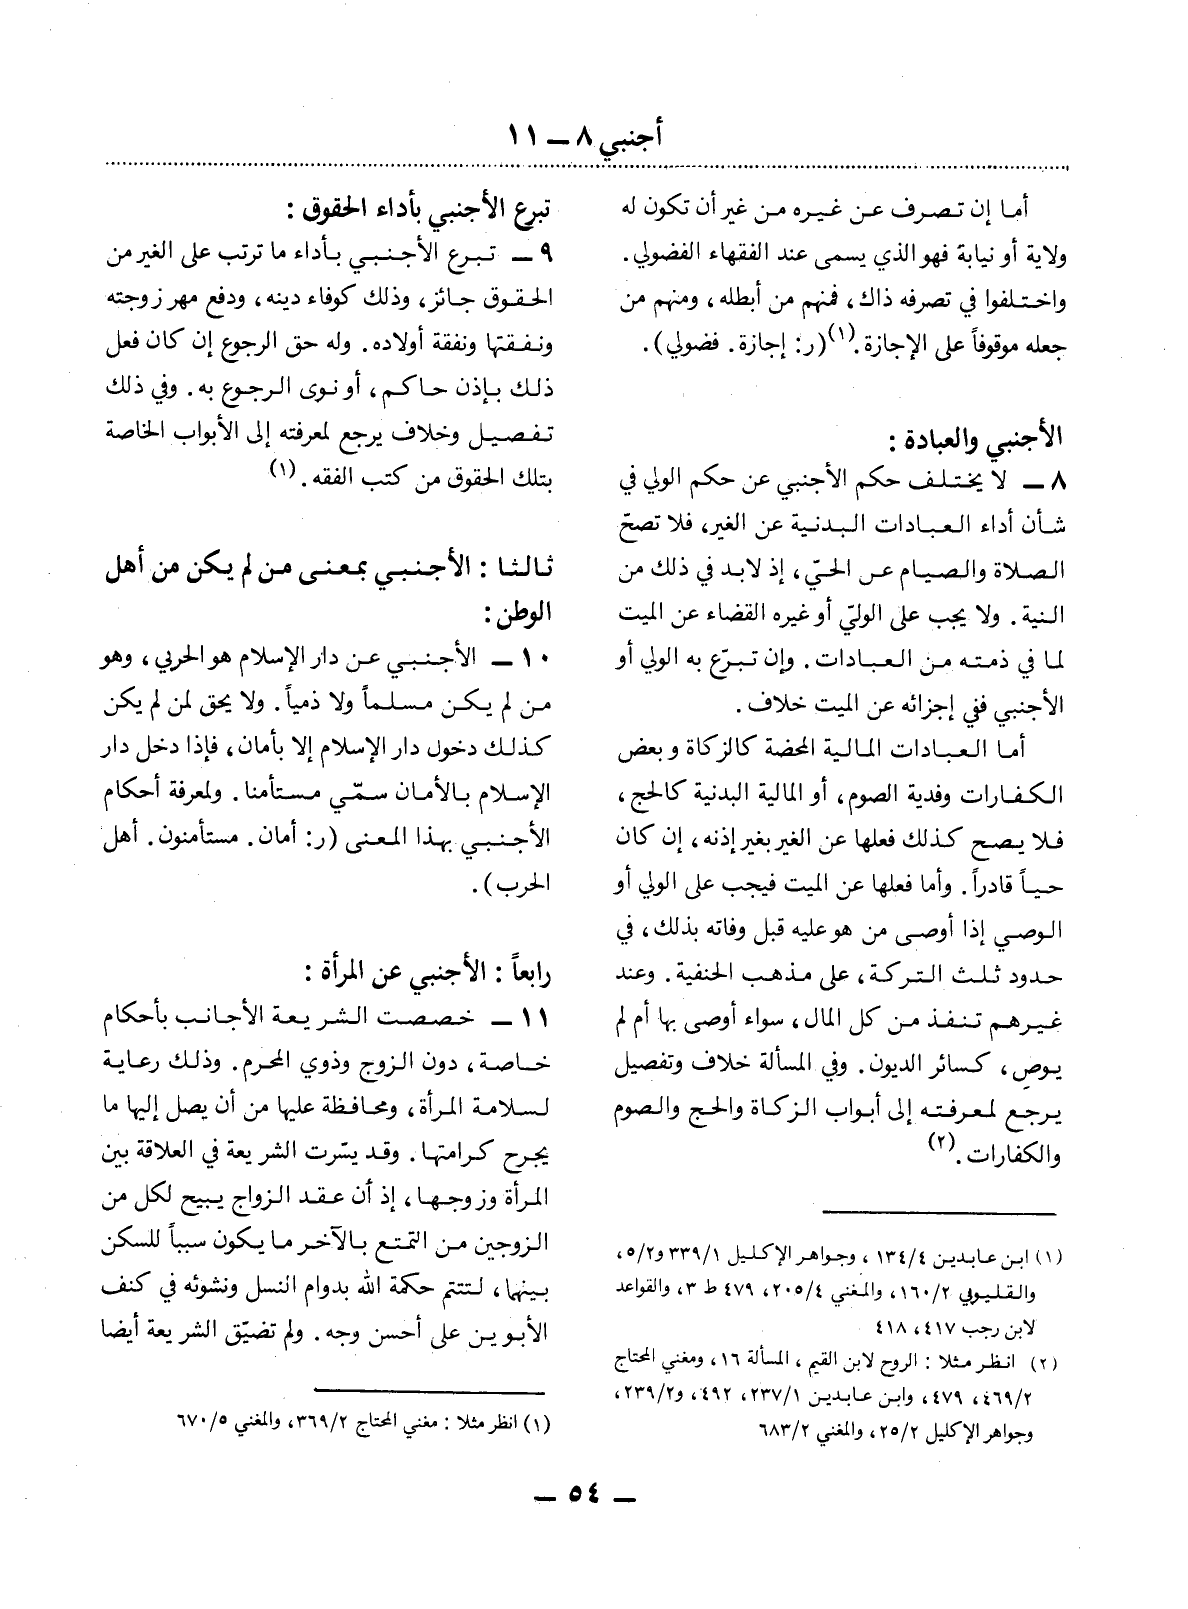 أجنبي ٨ ــ ١١
أما إن تصرف عن غيره من غير أن تكون له
ولاية أو نيابة فهو الذي يسمى عند الفقهاء الفضولي .
واختلفوا في تصرفه ذاك ، فمنهم من أبطله ، ومنهم من
جعله موقوفاً على الإجازة .(١)(ر: إجازة . فضولي) .
الأجنبي والعبادة :
٨ ــ لا يختلف حكم الأجنبي عن حكم الولي في
شأن أداء العبادات البدنية عن الغير، فلا تصحّ
الصلاة والصيام عن الحيّ ، إذ لابد في ذلك من
النية . ولا يجب على الوليّ أو غيره القضاء عن الميت
لما في ذمته من العبادات . وإن تبرّع به الولي أو
الأجنبي ففي إجزائه عن الميت خلاف .
أما العبادات المالية المحضة كالزكاة وبعض
الكفارات وفدية الصوم ، أو المالية البدنية كالحج ،
فلا يصح كذلك فعلها عن الغير بغير إذنه ، إن كان
حياً قادراً . وأما فعلها عن الميت فيجب على الولي أو
الوصي إذا أوصى من هو عليه قبل وفاته بذلك ، في
حدود ثلث التركة ، على مذهب الحنفية . وعند
غيرهم تنفذ من كل المال ، سواء أوصى بها أم لم
يوص ، كسائر الديون . وفي المسألة خلاف وتفصيل
يرجع لمعرفته إلى أبواب الزكاة والحج والصوم
والكفارات .(٢)
(١) ابن عابدين ١٣٤/٤ ، وجواهر الإكليل ٣٣٩/١ و٥/٢ ،
والقليوبي ١٦٠/٢ ، والمغني ٢٠٥/٤ ، ٤٧٩ ط ٣ ، والقواعد
لابن رجب ٤١٧ ، ٤١٨
(٢) انظر مثلا : الروح لابن القيم ، المسألة ١٦ ، ومغني المحتاج
٤٦٩/٢ ، ٤٧٩ ، وابن عابدين ٢٣٧/١ ، ٤٩٢ ، و٢٣٩/٢ ،
وجواهر الإكليل ٢٥/٢ ، والمغني ٦٨٣/٢
تبرع الأجنبي بأداء الحقوق :
٩ ــ تبرع الأجنبي بأداء ما ترتب على الغير من
الحقوق جائز، وذلك كوفاء دينه ، ودفع مهر زوجته
ونفقتها ونفقة أولاده . وله حق الرجوع إن كان فعل
ذلك بإذن حاكم ، أو نوى الرجوع به . وفي ذلك
تفصيل وخلاف يرجع لمعرفته إلى الأبواب الخاصة
بتلك الحقوق من كتب الفقه .(١)
ثالثا : الأجنبي بمعنى من لم يكن من أهل
الوطن :
١٠ ــ الأجنبي عن دار الإسلام هو الحربي ، وهو
من لم يكن مسلماً ولا ذمياً . ولا يحق لمن لم يكن
كذلك دخول دار الإسلام إلا بأمان ، فإذا دخل دار
الإسلام بالأمان سمّي مستأمنا . ولمعرفة أحكام
الأجنبي بهذا المعنى (ر: أمان . مستأمنون . أهل
الحرب) .
رابعاً : الأجنبي عن المرأة :
١١ ــ خصصت الشريعة الأجانب بأحكام
خاصة ، دون الزوج وذوي المحرم . وذلك رعاية
لسلامة المرأة ، ومحافظة عليها من أن يصل إليها ما
يجرح كرامتها . وقد يسّرت الشريعة في العلاقة بين
المرأة وزوجها ، إذ أن عقد الزواج يبيح لكل من
الزوجين من التمتع بالآخر ما يكون سبباً للسكن
بينهما ، لتتم حكمة الله بدوام النسل ونشوئه في كنف
الأبوين على أحسن وجه . ولم تضيّق الشريعة أيضا
(١) انظر مثلا : مغني المحتاج ٣٦٩/٢ ، والمغني ٦٧٠/٥
ــ ٥٤ ــ